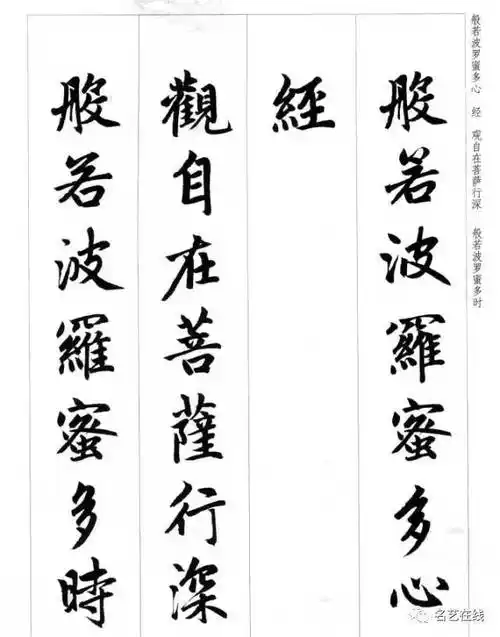 般若波罗蜜多心 经 观自在菩萨行深 般若波罗蜜多时
般若波羅蜜多心
經
觀自在菩薩行深
般若波羅蜜多時
名艺在线